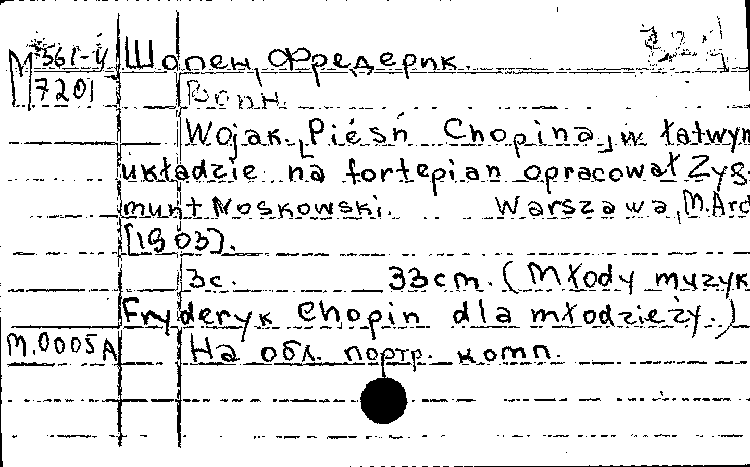 М 561-4 Шопен, Фредерик.
7201
Wojak. [Pieśń Chopina,] w łatwym
układzie na fortepian opracował Zyg-
munt Noskowski. Warszawa, M. Arc
[1903].
3с. 33cm. (Młody muzyk
Fryderyk Chopin dla młodzieży.)
М.0005А На обл. портр. комп.